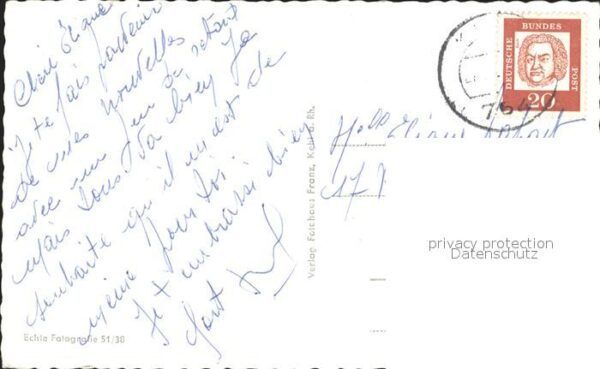 Chère
Je te fais parvenir
de mes nouvelles
avec un de retard
mais tous va bien Je
souhaite qu'il en est de
même pour toi.
Je t'embrasse bien
fort
Echte Fotografie 51/38
Verlag Fotohaus Franz, Kehl a. Rh.
DEUTSCHE
BUNDES
POST
20
764
Melle
17
privacy protection
Datenschutz